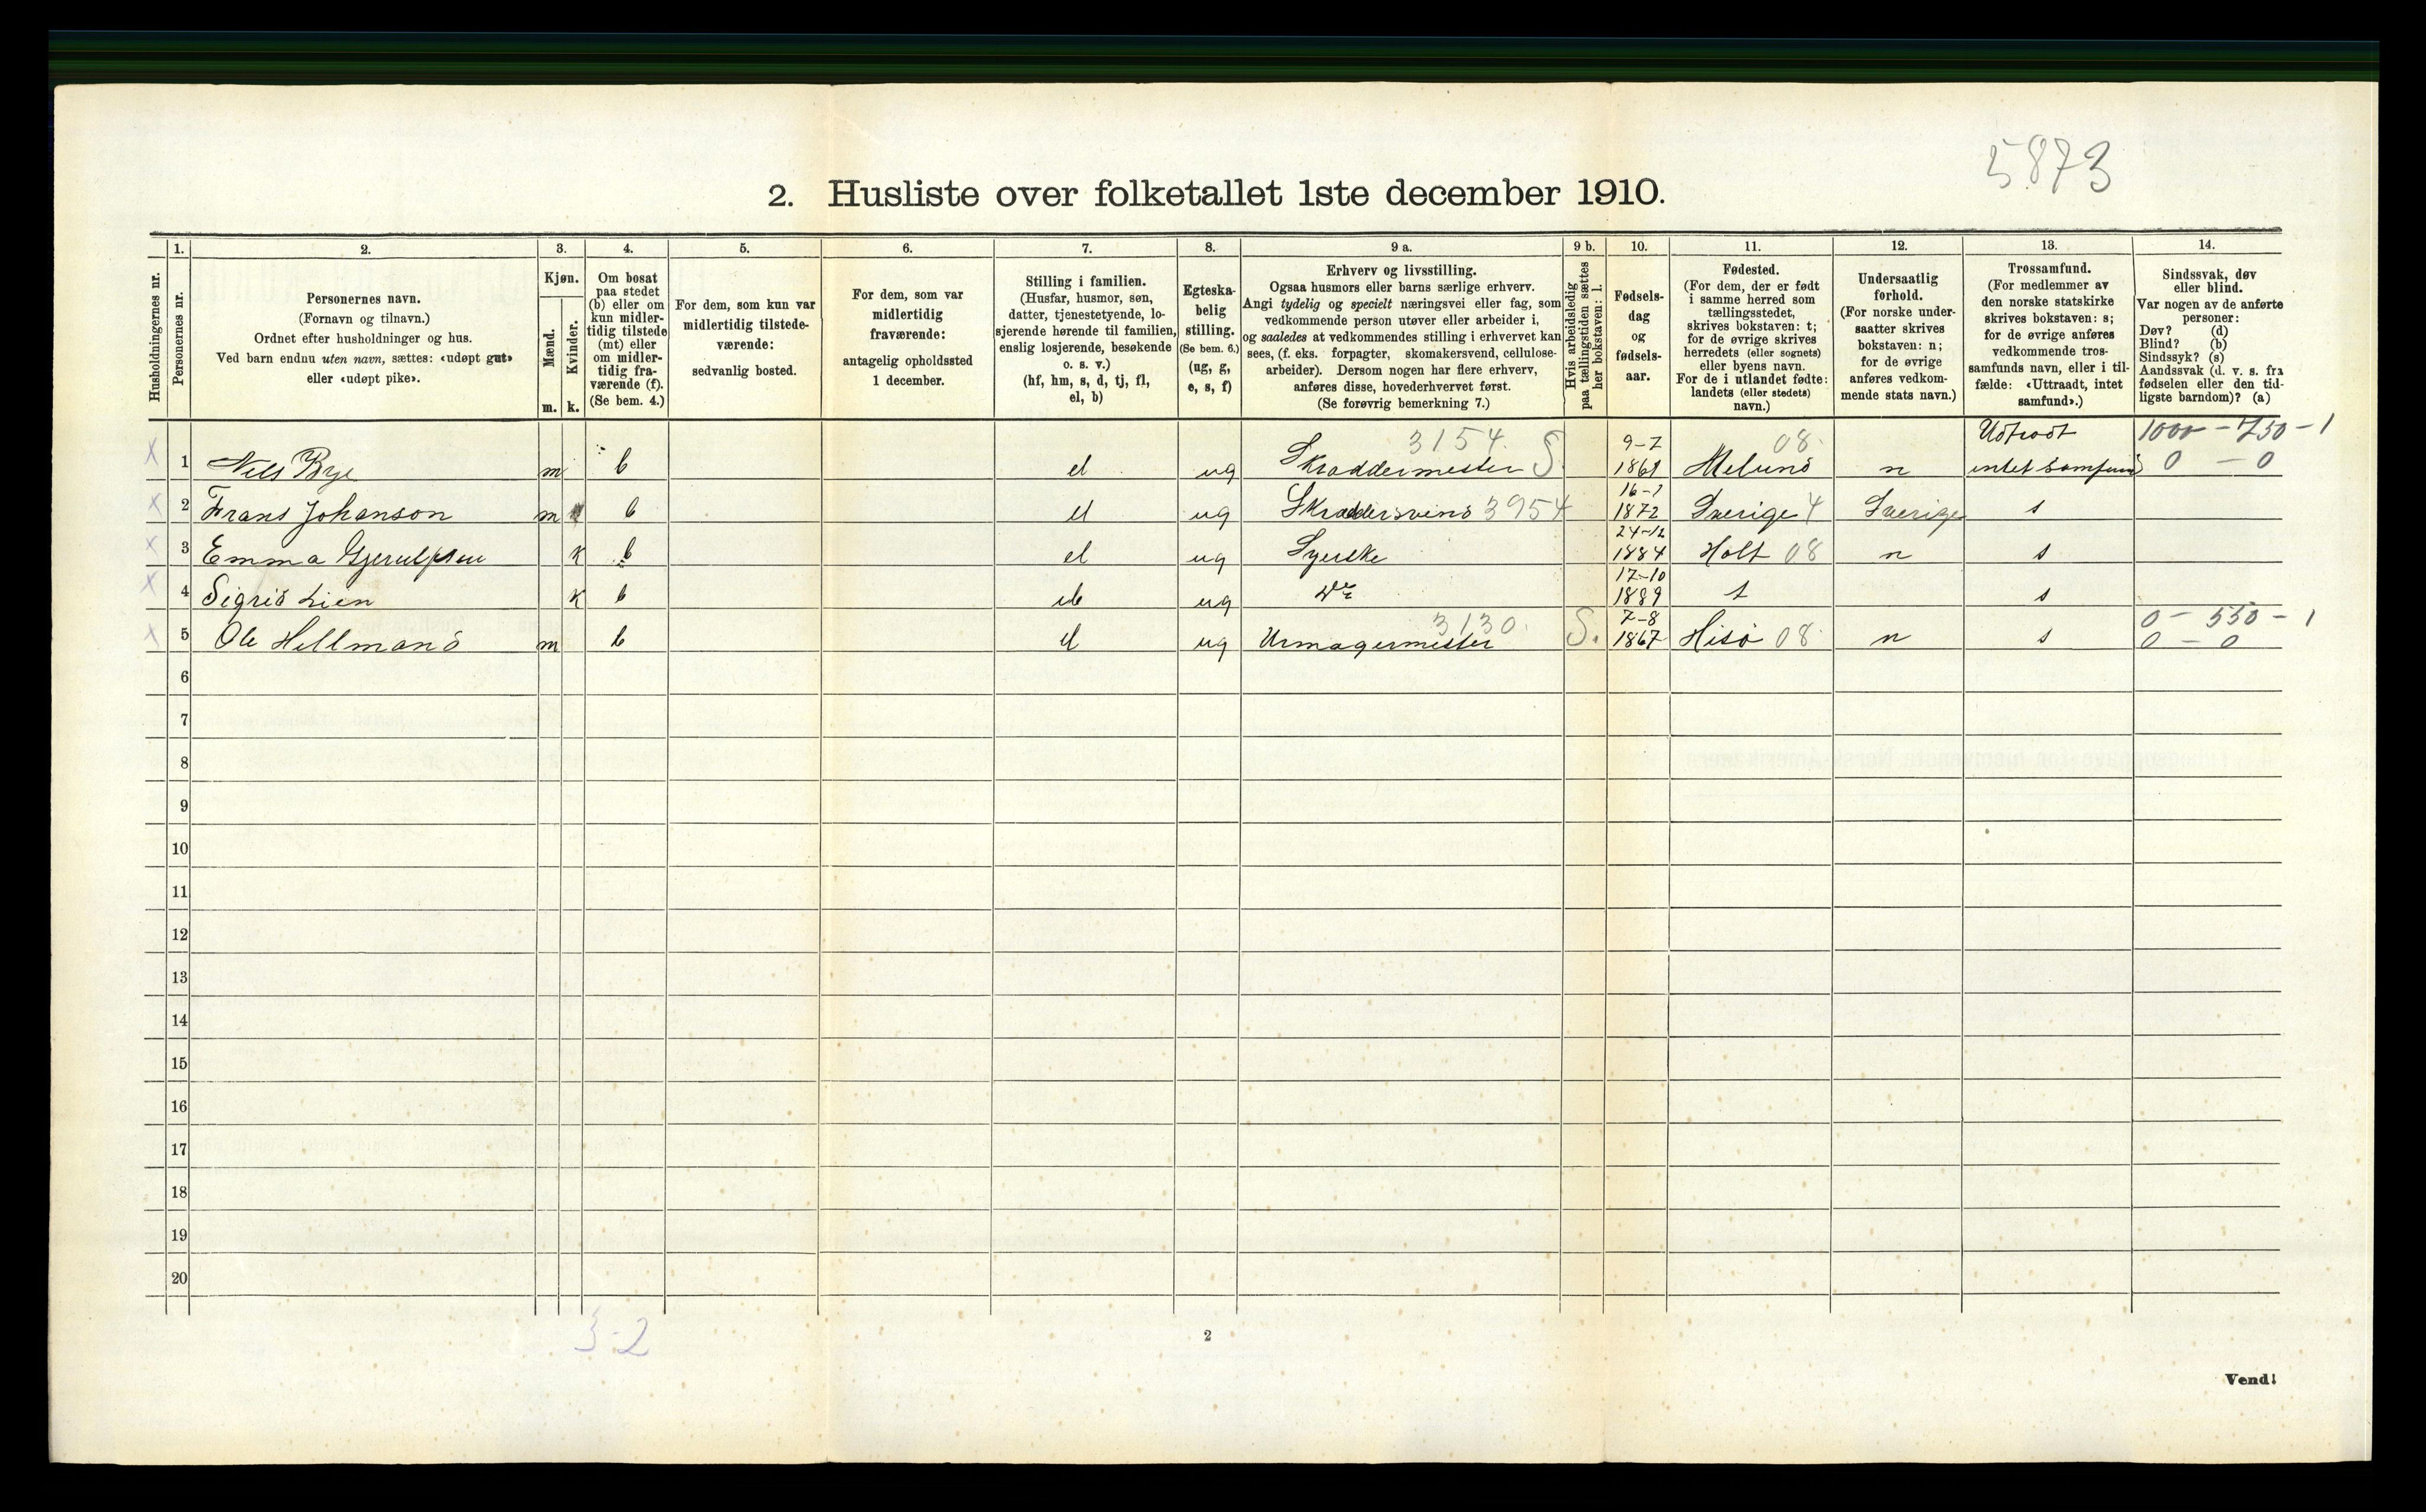 5873
2. Husliste over folketallet 1ste december 1910.
Husholdningernes nr.
1.
Personernes nr.
2.
Personernes navn.
(Fornavn og tilnavn.)
Ordnet efter husholdninger og hus.
Ved barn endnu uten navn, sættes: «udøpt gut»
eller «udøpt pike».
3.
Kjøn.
Mænd.
m.
Kvinder.
k.
4.
Om bosat
paa stedet
(b) eller om
kun midler-
tidig tilstede
(mt) eller
om midler-
tidig fra-
værende (f).
(Se bem. 4.)
5.
For dem, som kun var
midlertidig tilstede-
værende:
sedvanlig bosted.
6.
For dem, som var
midlertidig
fraværende:
antagelig opholdssted
1 december.
7.
Stilling i familien.
(Husfar, husmor, søn,
datter, tjenestetyende, lo-
sjerende hørende til familien,
enslig losjerende, besøkende
o. s. v.)
(hf, hm, s, d, tj, fl,
el, b)
8.
Egteska-
belig
stilling.
(Se bem. 6.)
(ug, g,
e, s, f)
9 a.
Erhverv og livsstilling.
Ogsaa husmors eller barns særlige erhverv.
Angi tydelig og specielt næringsvei eller fag, som
vedkommende person utøver eller arbeider i,
og saaledes at vedkommendes stilling i erhvervet kan
sees, (f. eks. forpagter, skomakersvend, cellulose-
arbeider). Dersom nogen har flere erhverv,
anføres disse, hovederhvervet først.
(Se forøvrig bemerkning 7.)
9 b.
Hvis arbeidsledig
paa tællingstiden sættes
her bokstaven: l.
10.
Fødsels-
dag
og
fødsels-
aar.
11.
Fødested.
(For dem, der er født
i samme herred som
tællingsstedet,
skrives bokstaven: t;
for de øvrige skrives
herredets (eller sognets)
eller byens navn.
For de i utlandet fødte:
landets (eller stedets)
navn.)
12.
Undersaatlig
forhold.
(For norske under-
saatter skrives
bokstaven: n;
for de øvrige
anføres vedkom-
mende stats navn.)
13.
Trossamfund.
(For medlemmer av
den norske statskirke
skrives bokstaven: s;
for de øvrige anføres
vedkommende tros-
samfunds navn, eller i til-
fælde: «Uttraadt, intet
samfund».)
14.
Sindssvak, døv
eller blind.
Var nogen av de anførte
personer:
Døv? (d)
Blind? (b)
Sindssyk? (s)
Aandssvak (d. v. s. fra
fødselen eller den tid-
ligste barndom)? (a)
3154. 9-7 08. Udtraadt 1000 - 750 - 1
x 1 Nils Bye m b el ug Skraddermester S. Melund n intet samfund 0 - 0
16-1
x 2 Frans Johanson m b el ug Skraddersvend 3954 1872 Sverige 4 Sverige s
24-12
x 3 Emma k b el ug Syerske 1884 Holt 08 n s
17-10
x 4 Sigrid Lien k b el ug do 1889 t s
3130. 7-8 0 - 550 - 1
x 5 Ole Hellmand m b el ug Urmagermester S. 1867 Hisø 08 n s 0 - 0
6
7
8
9
10
11
12
13
14
15
16
17
18
19
20
3-2
2
Vend!